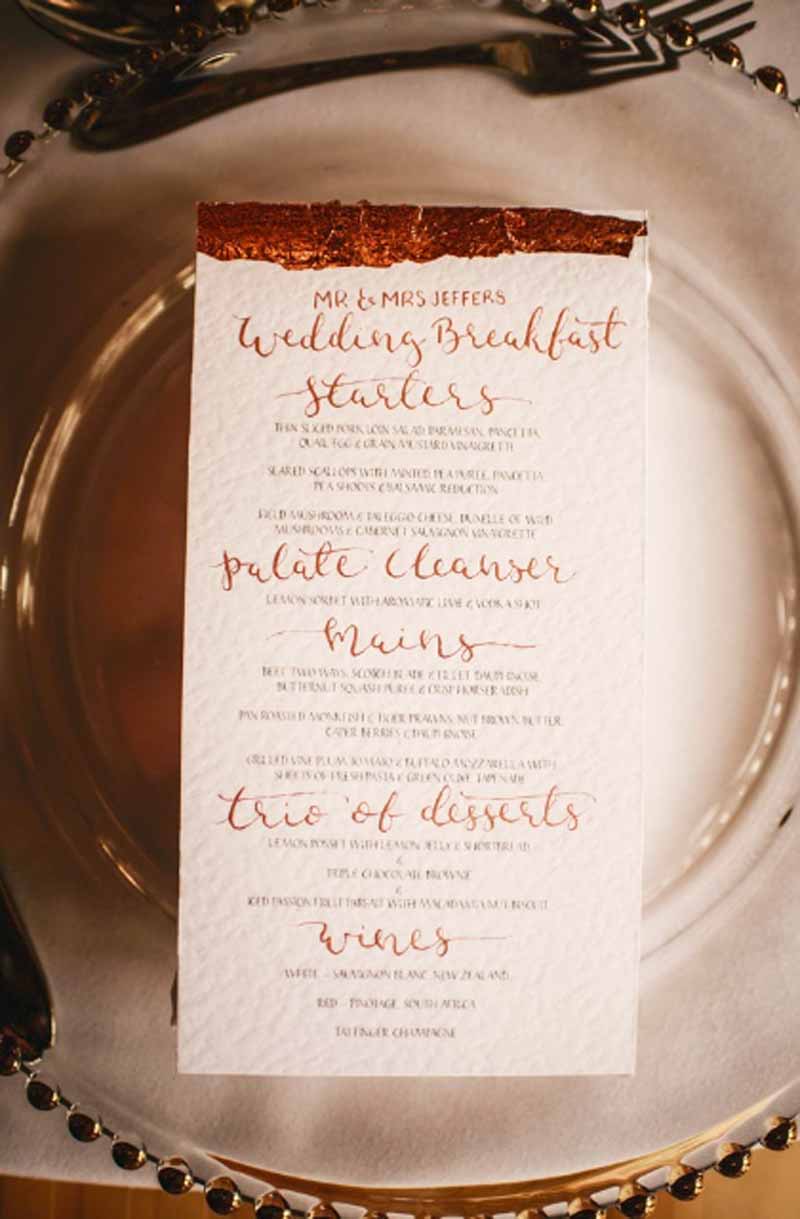 MR. & MRS JEFFERS
Wedding Breakfast
Starters
THIN SLICED PORK LOIN SALAD, PARMESAN, PANCETTA,
QUAIL EGG & GRAIN MUSTARD VINAIGRETTE
SEARED SCALLOPS WITH MINTED PEA PUREE, PANCETTA,
PEA SHOOTS & BALSAMIC REDUCTION
FIELD MUSHROOM & TALEGGIO CHEESE, DUXELLE OF WILD
MUSHROOMS & CABERNET SAUVIGNON VINAIGRETTE
palate cleanser
LEMON SORBET WITH AROMATIC LIME & VODKA SHOT
Mains
BEEF TWO WAYS, SCOTCH BLADE & FILLET, DAUPHINOISE,
BUTTERNUT SQUASH PUREE & CRISP HORSERADISH
PAN ROASTED MONKFISH & TIGER PRAWNS, NUT BROWN BUTTER,
CAPER BERRIES & DAUPHINOISE
GRILLED VINE PLUM TOMATO & BUFFALO MOZZARELLA WITH
SHEETS OF FRESH PASTA & GREEN OLIVE TAPENADE
trio of desserts
LEMON POSSET WITH LEMON JELLY & SHORTBREAD
&
TRIPLE CHOCOLATE BROWNIE
&
ICED PASSION FRUIT PARFAIT WITH MACADAMIA NUT BISCUIT
wines
WHITE – SAUVIGNON BLANC, NEW ZEALAND
RED – PINOTAGE, SOUTH AFRICA
TAITINGER CHAMPAGNE